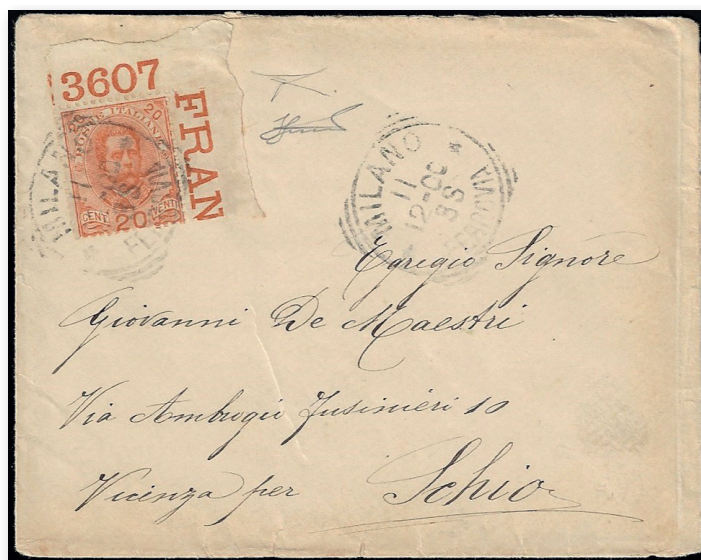 3607
FRAN
POSTE ITALIANE
20 20
CENT VENTI
20
MILANO
FERROVIA
MILANO
11
12-OB
96
FERROVIA
Egregio Signore
Giovanni De Maestri
Via Ambrogio Fusinieri 10
Vicenza per Schio